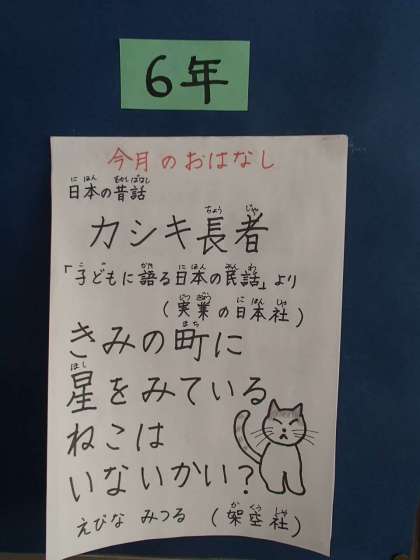 6年
今月のおはなし
日本の昔話
カシキ長者
「子どもに語る日本の民話」より
(実業の日本社)
きみの町に
星をみている
ねこは
いないかい?
えびな みつる (架空社)